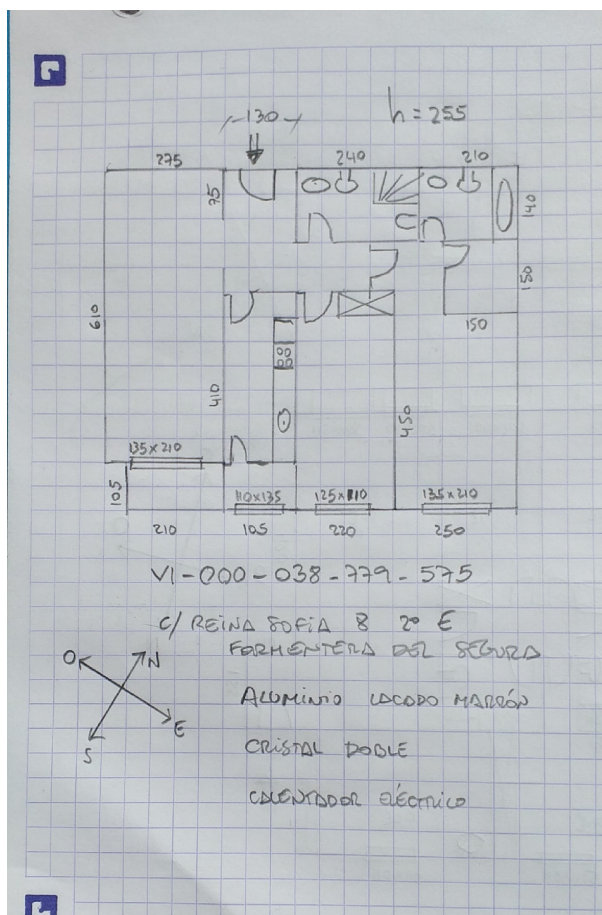 130
h = 255
275
240
210
75
140
150
610
150
410
450
135x210
105
110x135
125x110
135x210
210
105
220
250
VI-000-038-779-575
C/ REINA SOFIA 8 2º E
FORMENTERA DEL SEGURA
O
N
S
E
ALUMINIO LACADO MARRÓN
CRISTAL DOBLE
CALENTADOR ELÉCTRICO